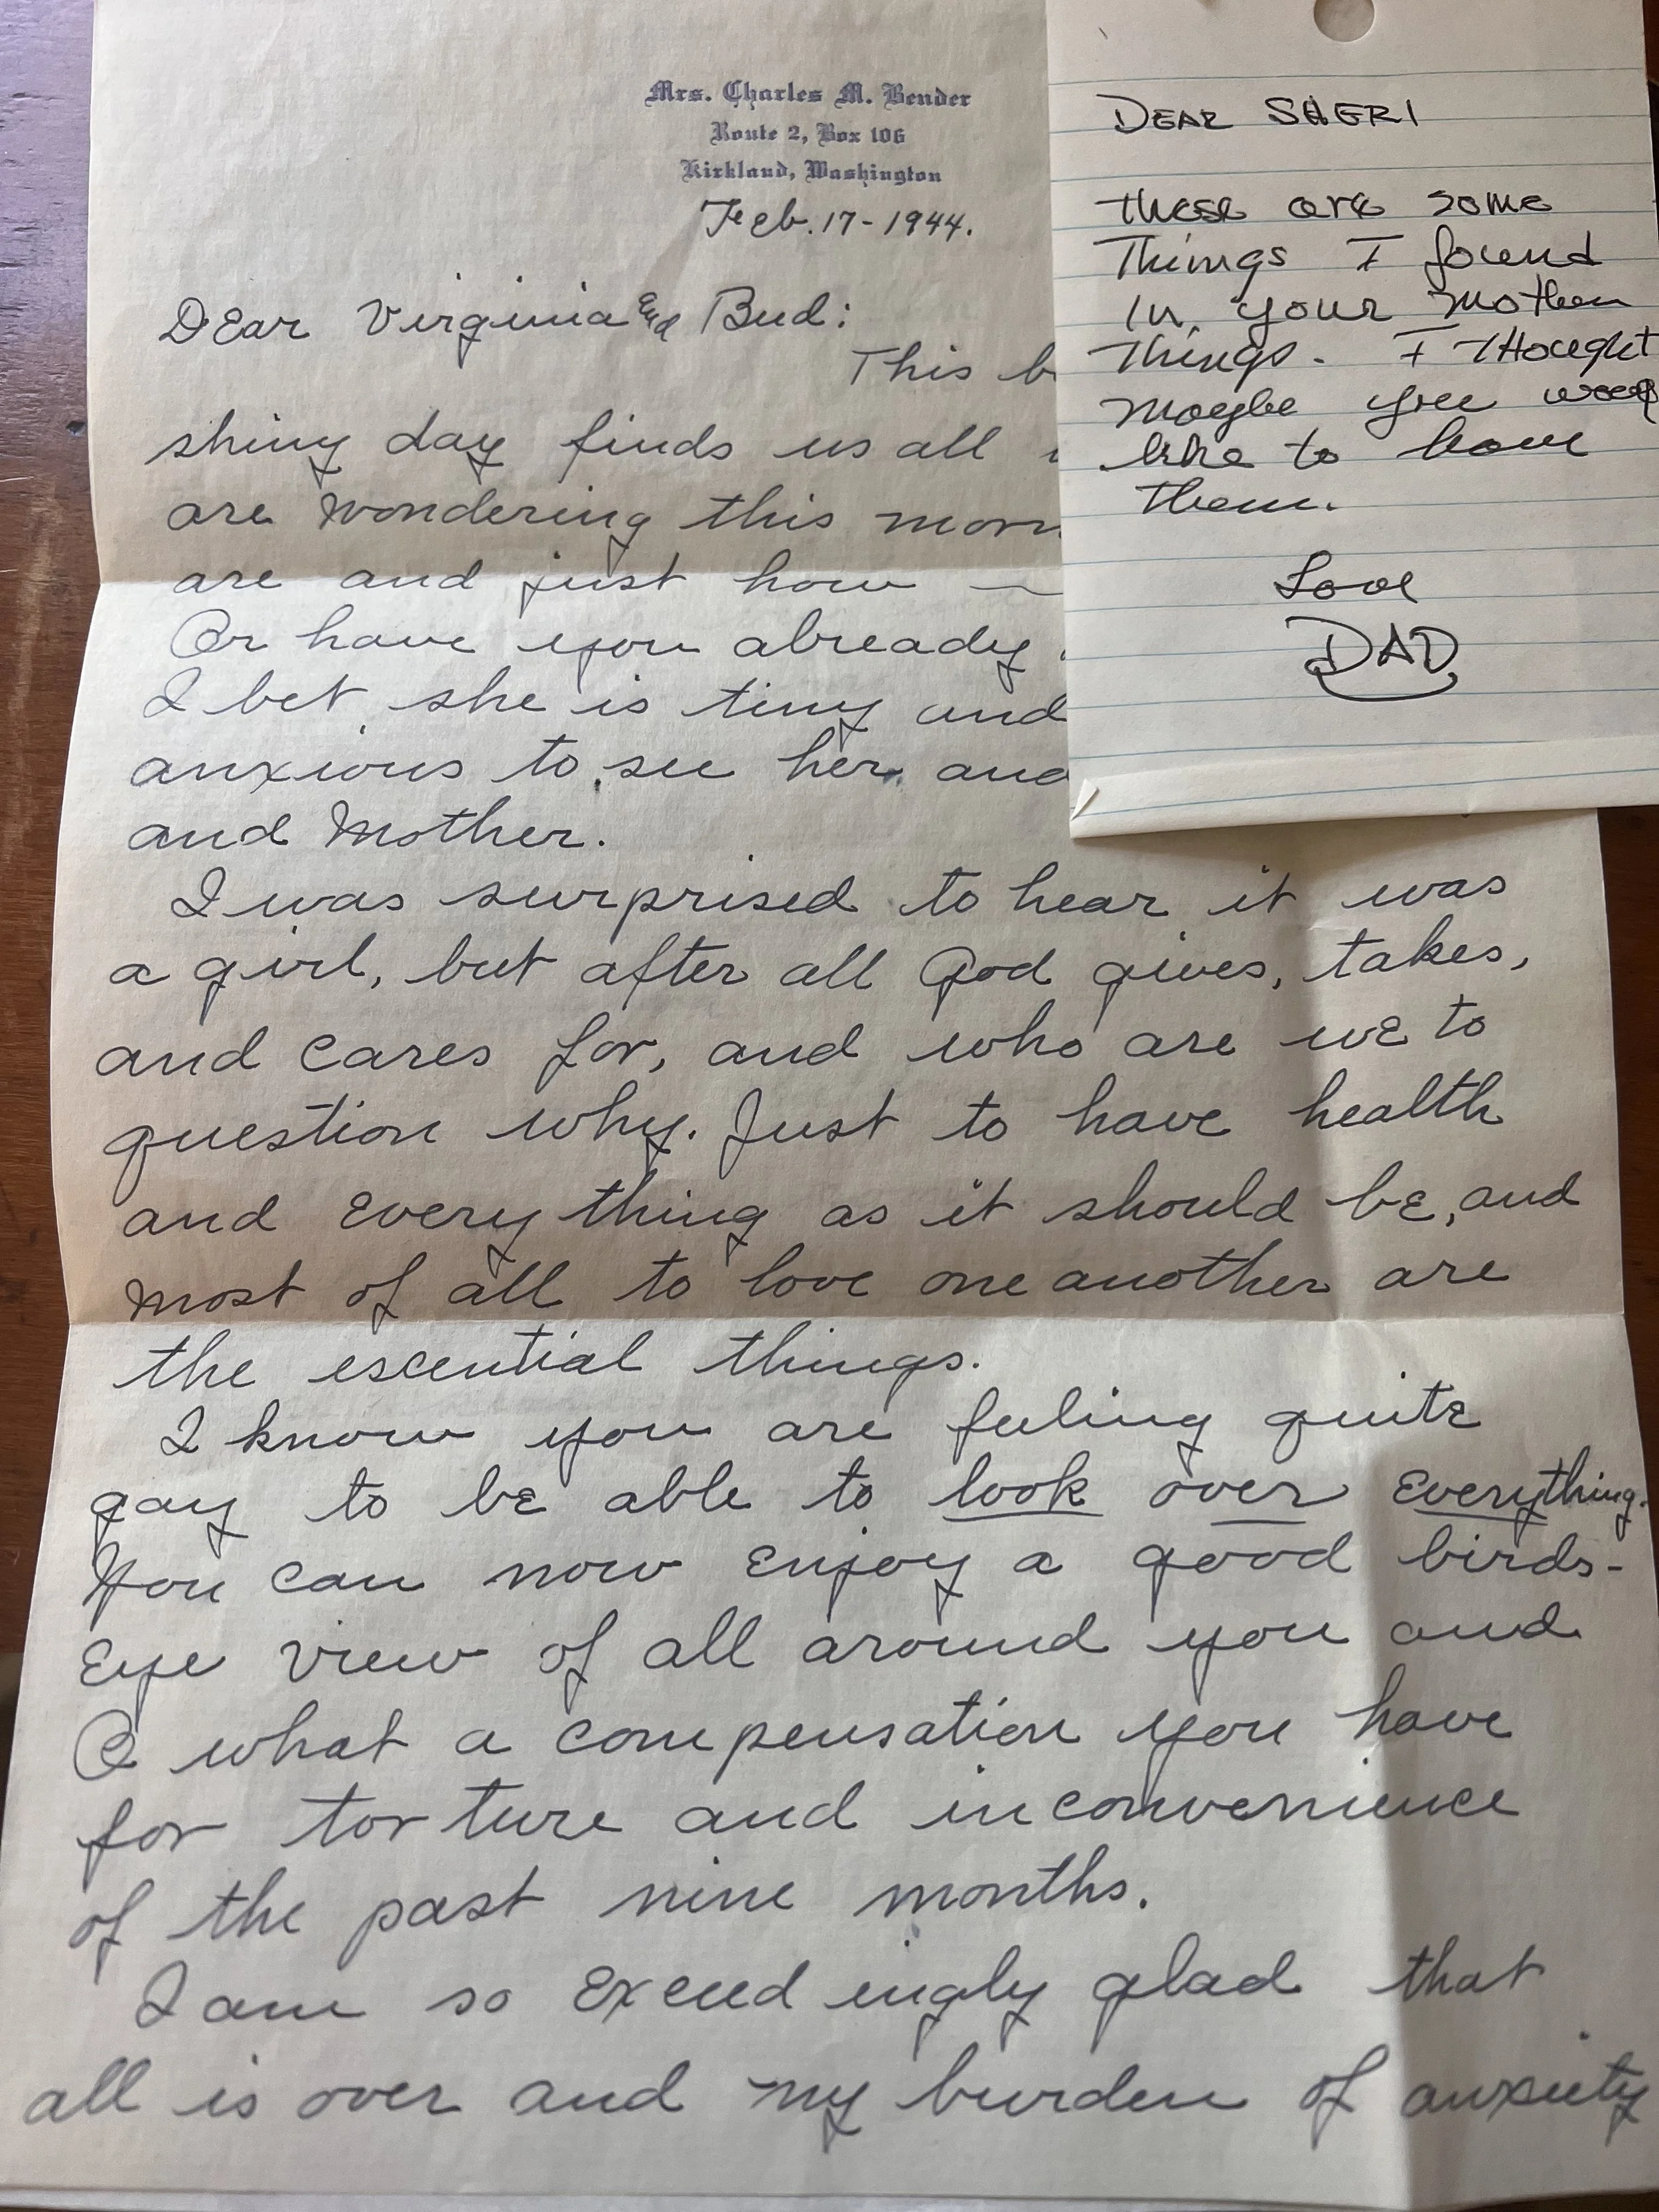 Mrs. Charles M. Bender
Route 2, Box 106
Kirkland, Washington
Feb. 17-1944.
Dear Virginia and Bud:
This
shiny day finds us all
are wondering this
are and just how —
Or have you already
I bet she is tiny and
anxious to see her and
and Mother.
I was surprised to hear it was
a girl, but after all God gives, takes,
and cares for, and who are we to
question why. Just to have health
and everything as it should be, and
most of all to love one another are
the escential things.
I know you are feeling quite
gay to be able to look over everything.
You can now enjoy a good birds-
eye view of all around you and
O what a compensation you have
for torture and inconvenience
of the past nine months.
I am so exceedingly glad that
all is over and my burden of anxiety
DEAR SHERI
these are some
Things I found
in your mother
things. I thought
maybe you
like to have
them.
Love
DAD